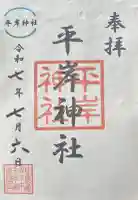 奉拝
平岸神社
平岸神社
令和七年七月六日
平岸神社